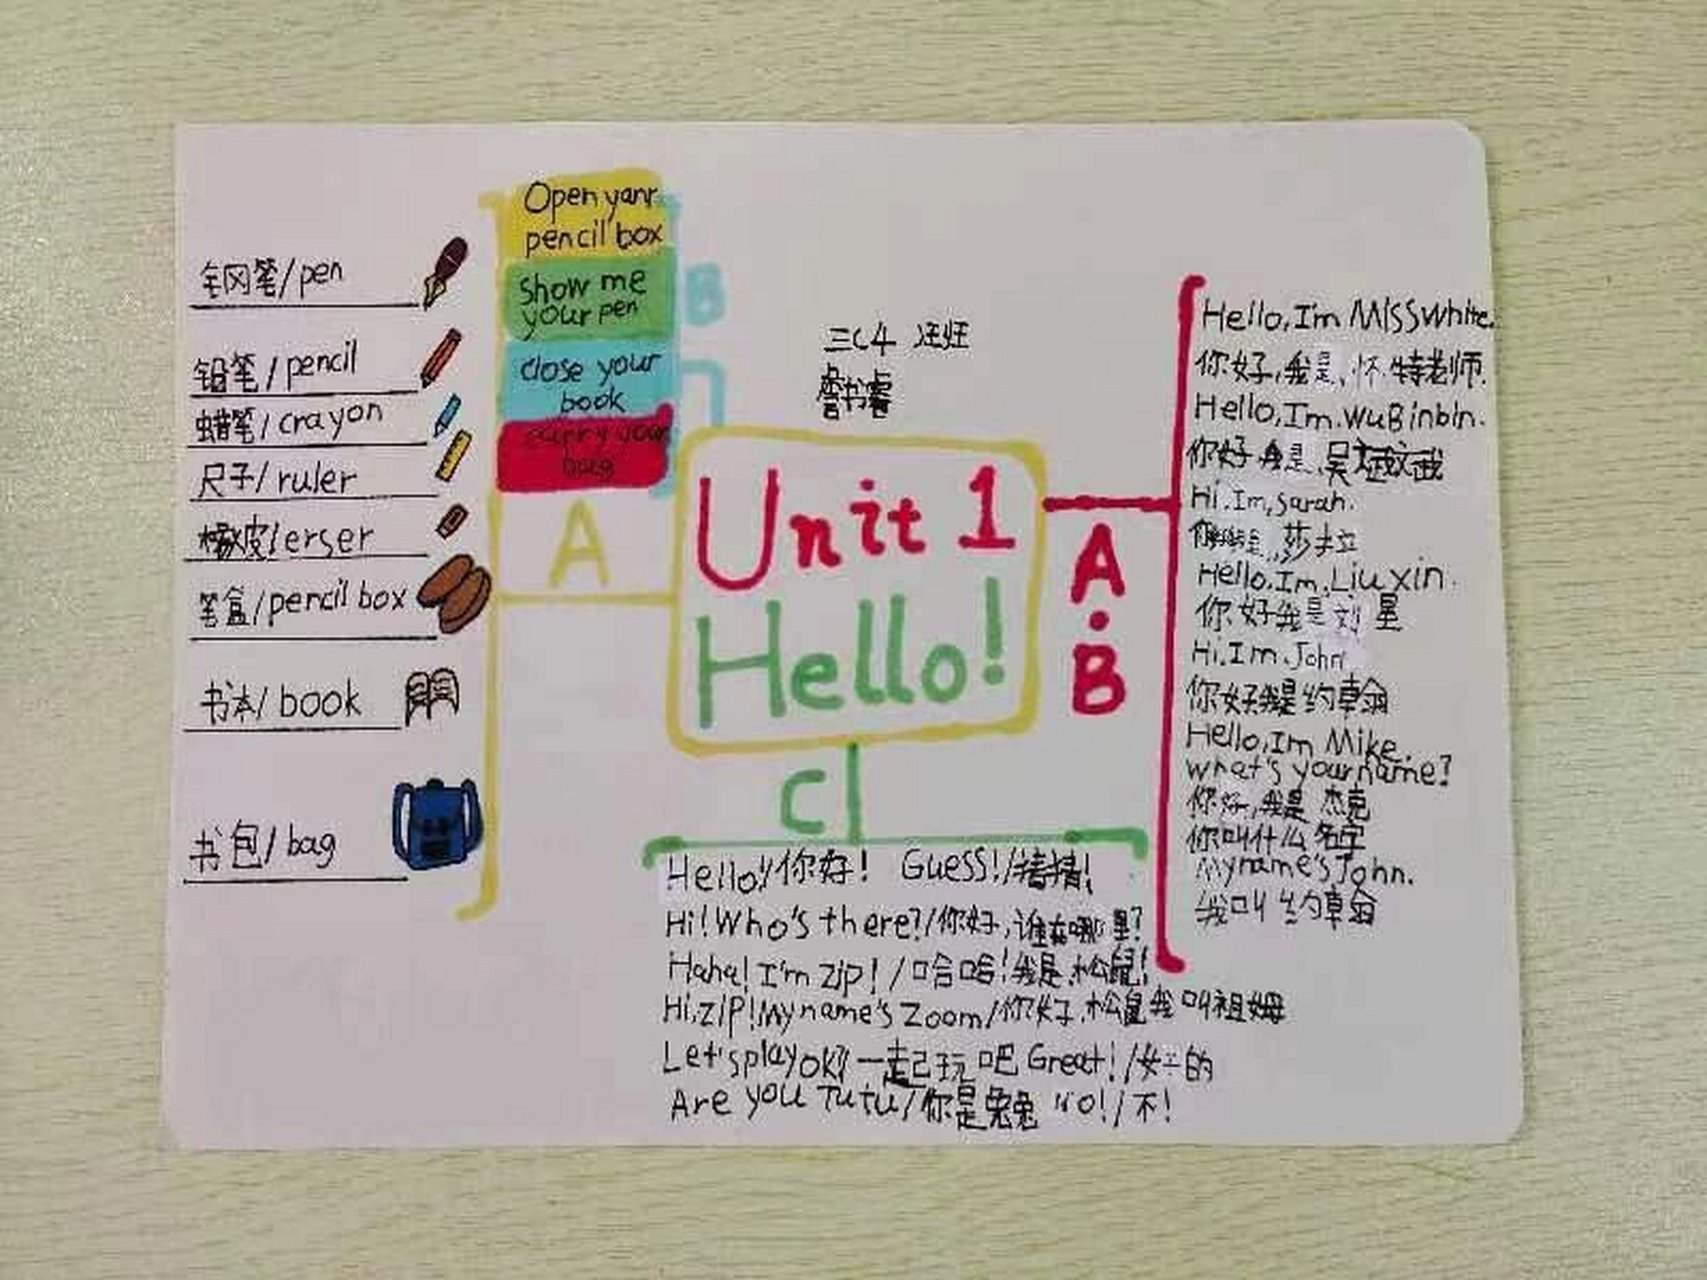 Open yanr
pencil box
show me
your pen
close your
book
carry your
bag
B
钢笔/pen
铅笔/pencil
蜡笔/crayon
尺子/ruler
橡皮/erser
笔盒/pencil box
书本/book
书包/bag
A
三(4
詹书睿
Unit 1
Hello!
A·B
Hello,Im MISSWhite.
你好,我是,怀特老师.
Hello,Im.WuBinbin.
你好我是,吴斌斌
Hi.Im,sarah.
你好我是,莎拉
Hello.Im.Liuxin.
你好我是刘星
Hi.Im.John
你好我是约翰
Hello,Im Mike.
what's yourname?
你好,我是杰克
你叫什么名字
Myname'sJohn.
我叫约翰
C
Hello!/你好! Guess!/猜猜!
Hi!Who's there?/你好,谁在哪里?
Haha!I'm Zip!/哈哈!我是松鼠!
Hi,ZIP!Myname's Zoom/你好,松鼠我叫祖姆
Let'splayok?/一起玩吧 Great!/好的
Are you Tutu/你是兔兔 NO!/不!